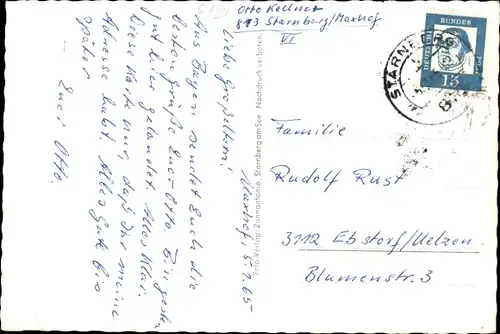 Otto Kellner
813 Starnberg/Maxhof
VI
Maxhof, 5.7.65
Liebe Großeltern!
Aus Bayern sendet Euch die
besten Grüße Euer Otto. Bin gestern
gut hier gelandet. Alles klar.
Diese Karte nur, daß Ihr meine
Adresse habt. Alles Gute bis
später
Euer Otto.
Foto-Verlag Zannantonio, Starnberg am See Nachdruck verboten
STARNBERG
DEUTSCHE BUNDESPOST
15
Familie
Rudolf Rust
3112 Ebstorf/Uelzen
Blumenstr. 3